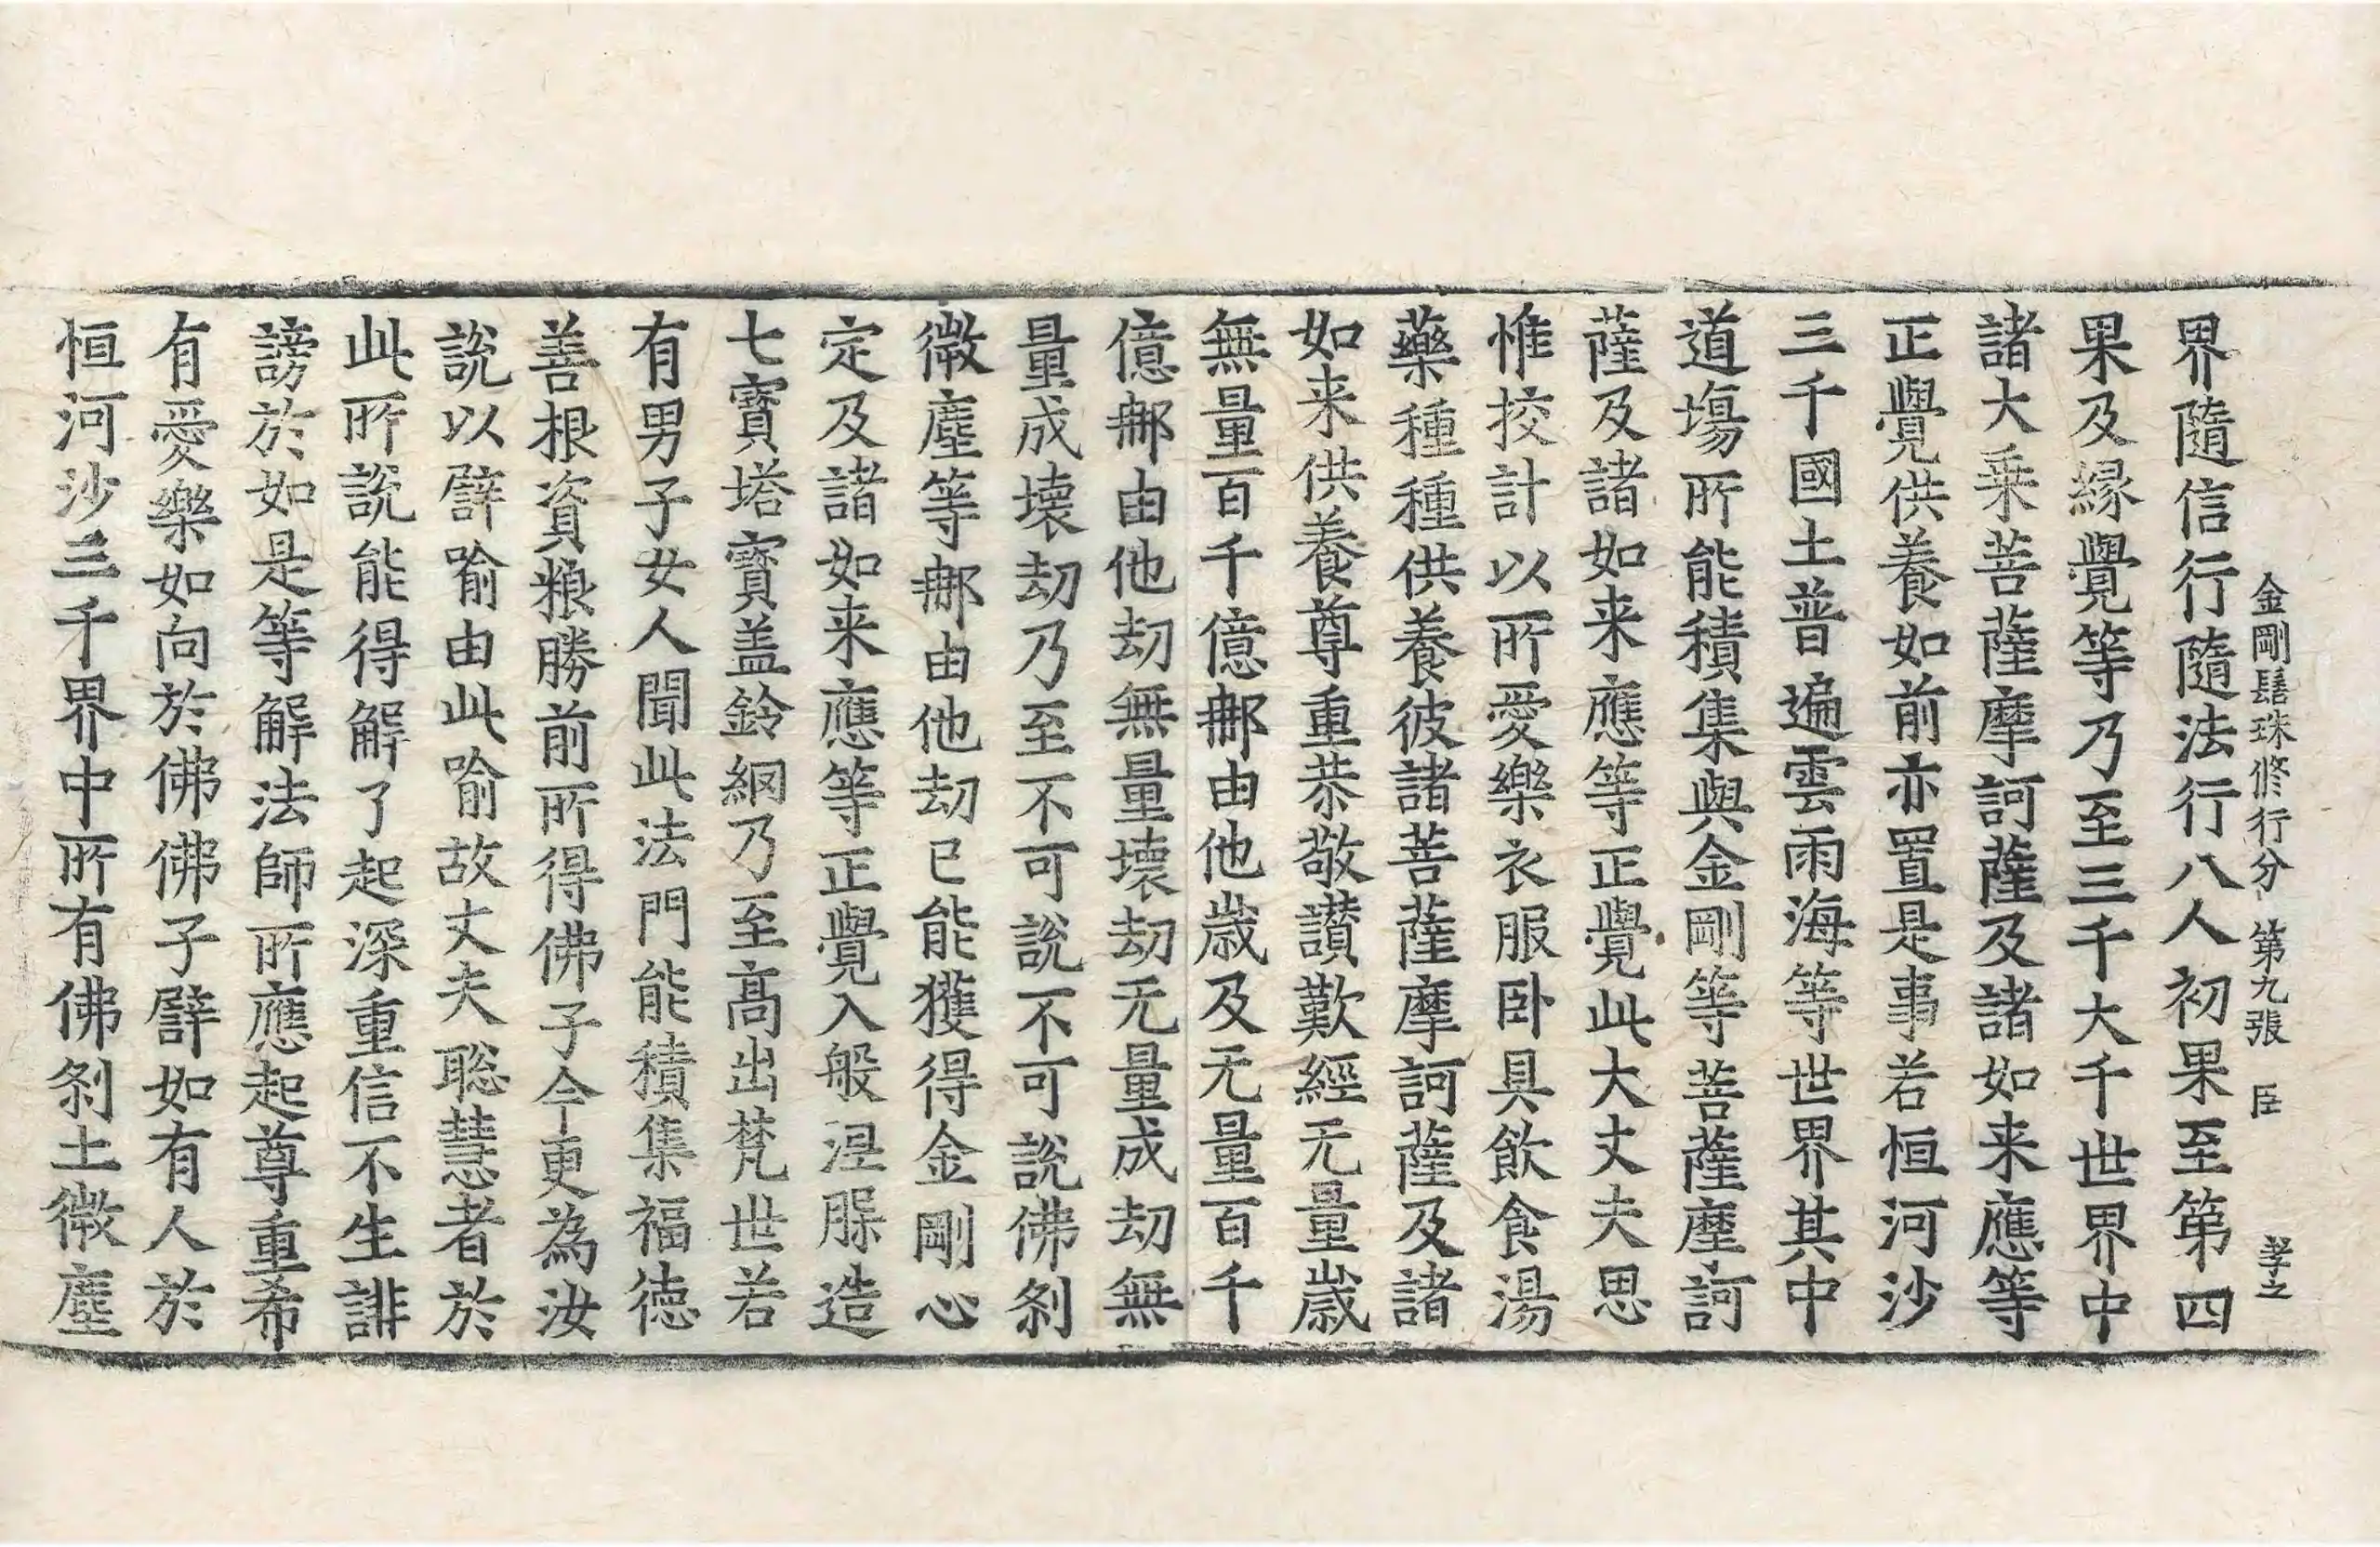 金剛髻珠修行分 第九張 臣 孝之
界隨信行隨法行八人初果至第四
果及緣覺等乃至三千大千世界中
諸大乘菩薩摩訶薩及諸如来應等
正覺供養如前亦置是事若恒河沙
三千國土普遍雲雨海等世界其中
道場所能積集與金剛等菩薩摩訶
薩及諸如来應等正覺此大丈夫思
惟挍計以所愛樂衣服卧具飲食湯
藥種種供養彼諸菩薩摩訶薩及諸
如来供養尊重恭敬讃歎經无量歲
無量百千億那由他歲及无量百千
億那由他劫無量壞劫无量成劫無
量成壞劫乃至不可說不可說佛刹
微塵等那由他劫已能獲得金剛心
定及諸如来應等正覺入般涅槃造
七寶塔寶盖鈴網乃至高出梵世若
有男子女人聞此法門能積集福德
善根資粮勝前所得佛子今更為汝
說以譬喻由此喻故丈夫聡慧者於
此所說能得解了起深重信不生誹
謗於如是等解法師所應起尊重希
有愛樂如向於佛佛子譬如有人於
恒河沙三千界中所有佛刹土微塵